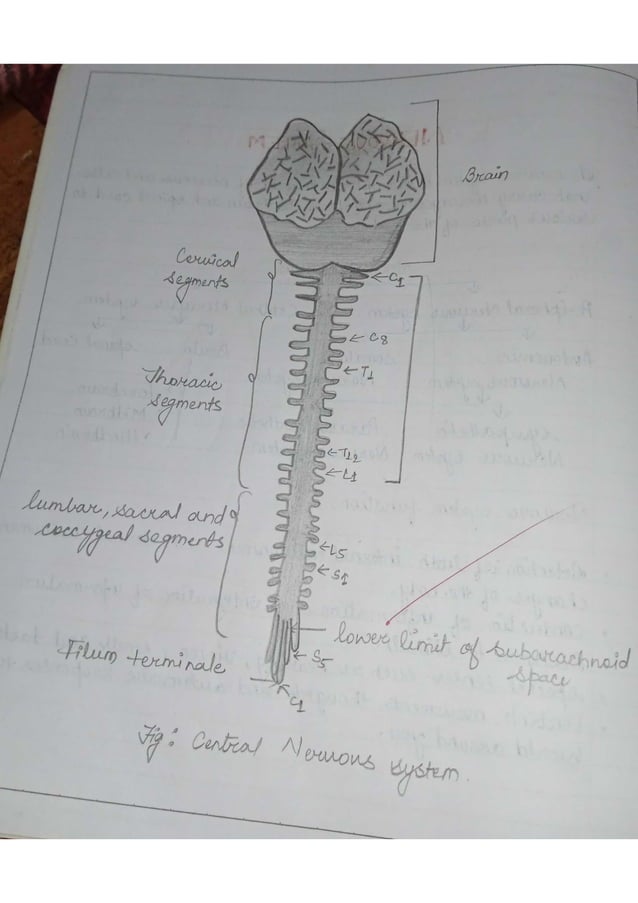 Brain
Cervical
segments
C1
C8
Thoracic
segments
T1
T12
L1
lumbar, sacral and
coccygeal segments
L5
S1
lower limit of subarachnoid
space
Filum terminale
S5
C1
Fig: Central Nervous system.